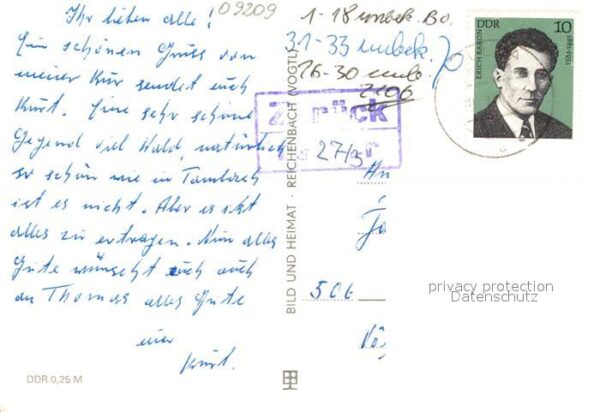 Ihr lieben alle!
09209
Ein schönen Gruss von
meiner Kur sendet euch
Kurt. Eine sehr schöne
Gegend viel Wald, natürlich
so schön wie in Tambach
ist es nicht. Aber es ist
alles zu ertragen. Nun alles
Gute wünscht euch auch
an Thomas alles Gute
euer
Kurt.
DDR 0,25 M
BILD UND HEIMAT · REICHENBACH (VOGTL)
1-18 unbek. Bo.
31-33 unbek.
26-30 unb.
2106
Zurück
27/5
DDR
10
ERICH BARON
1881-1933
An
506
privacy protection
Datenschutz